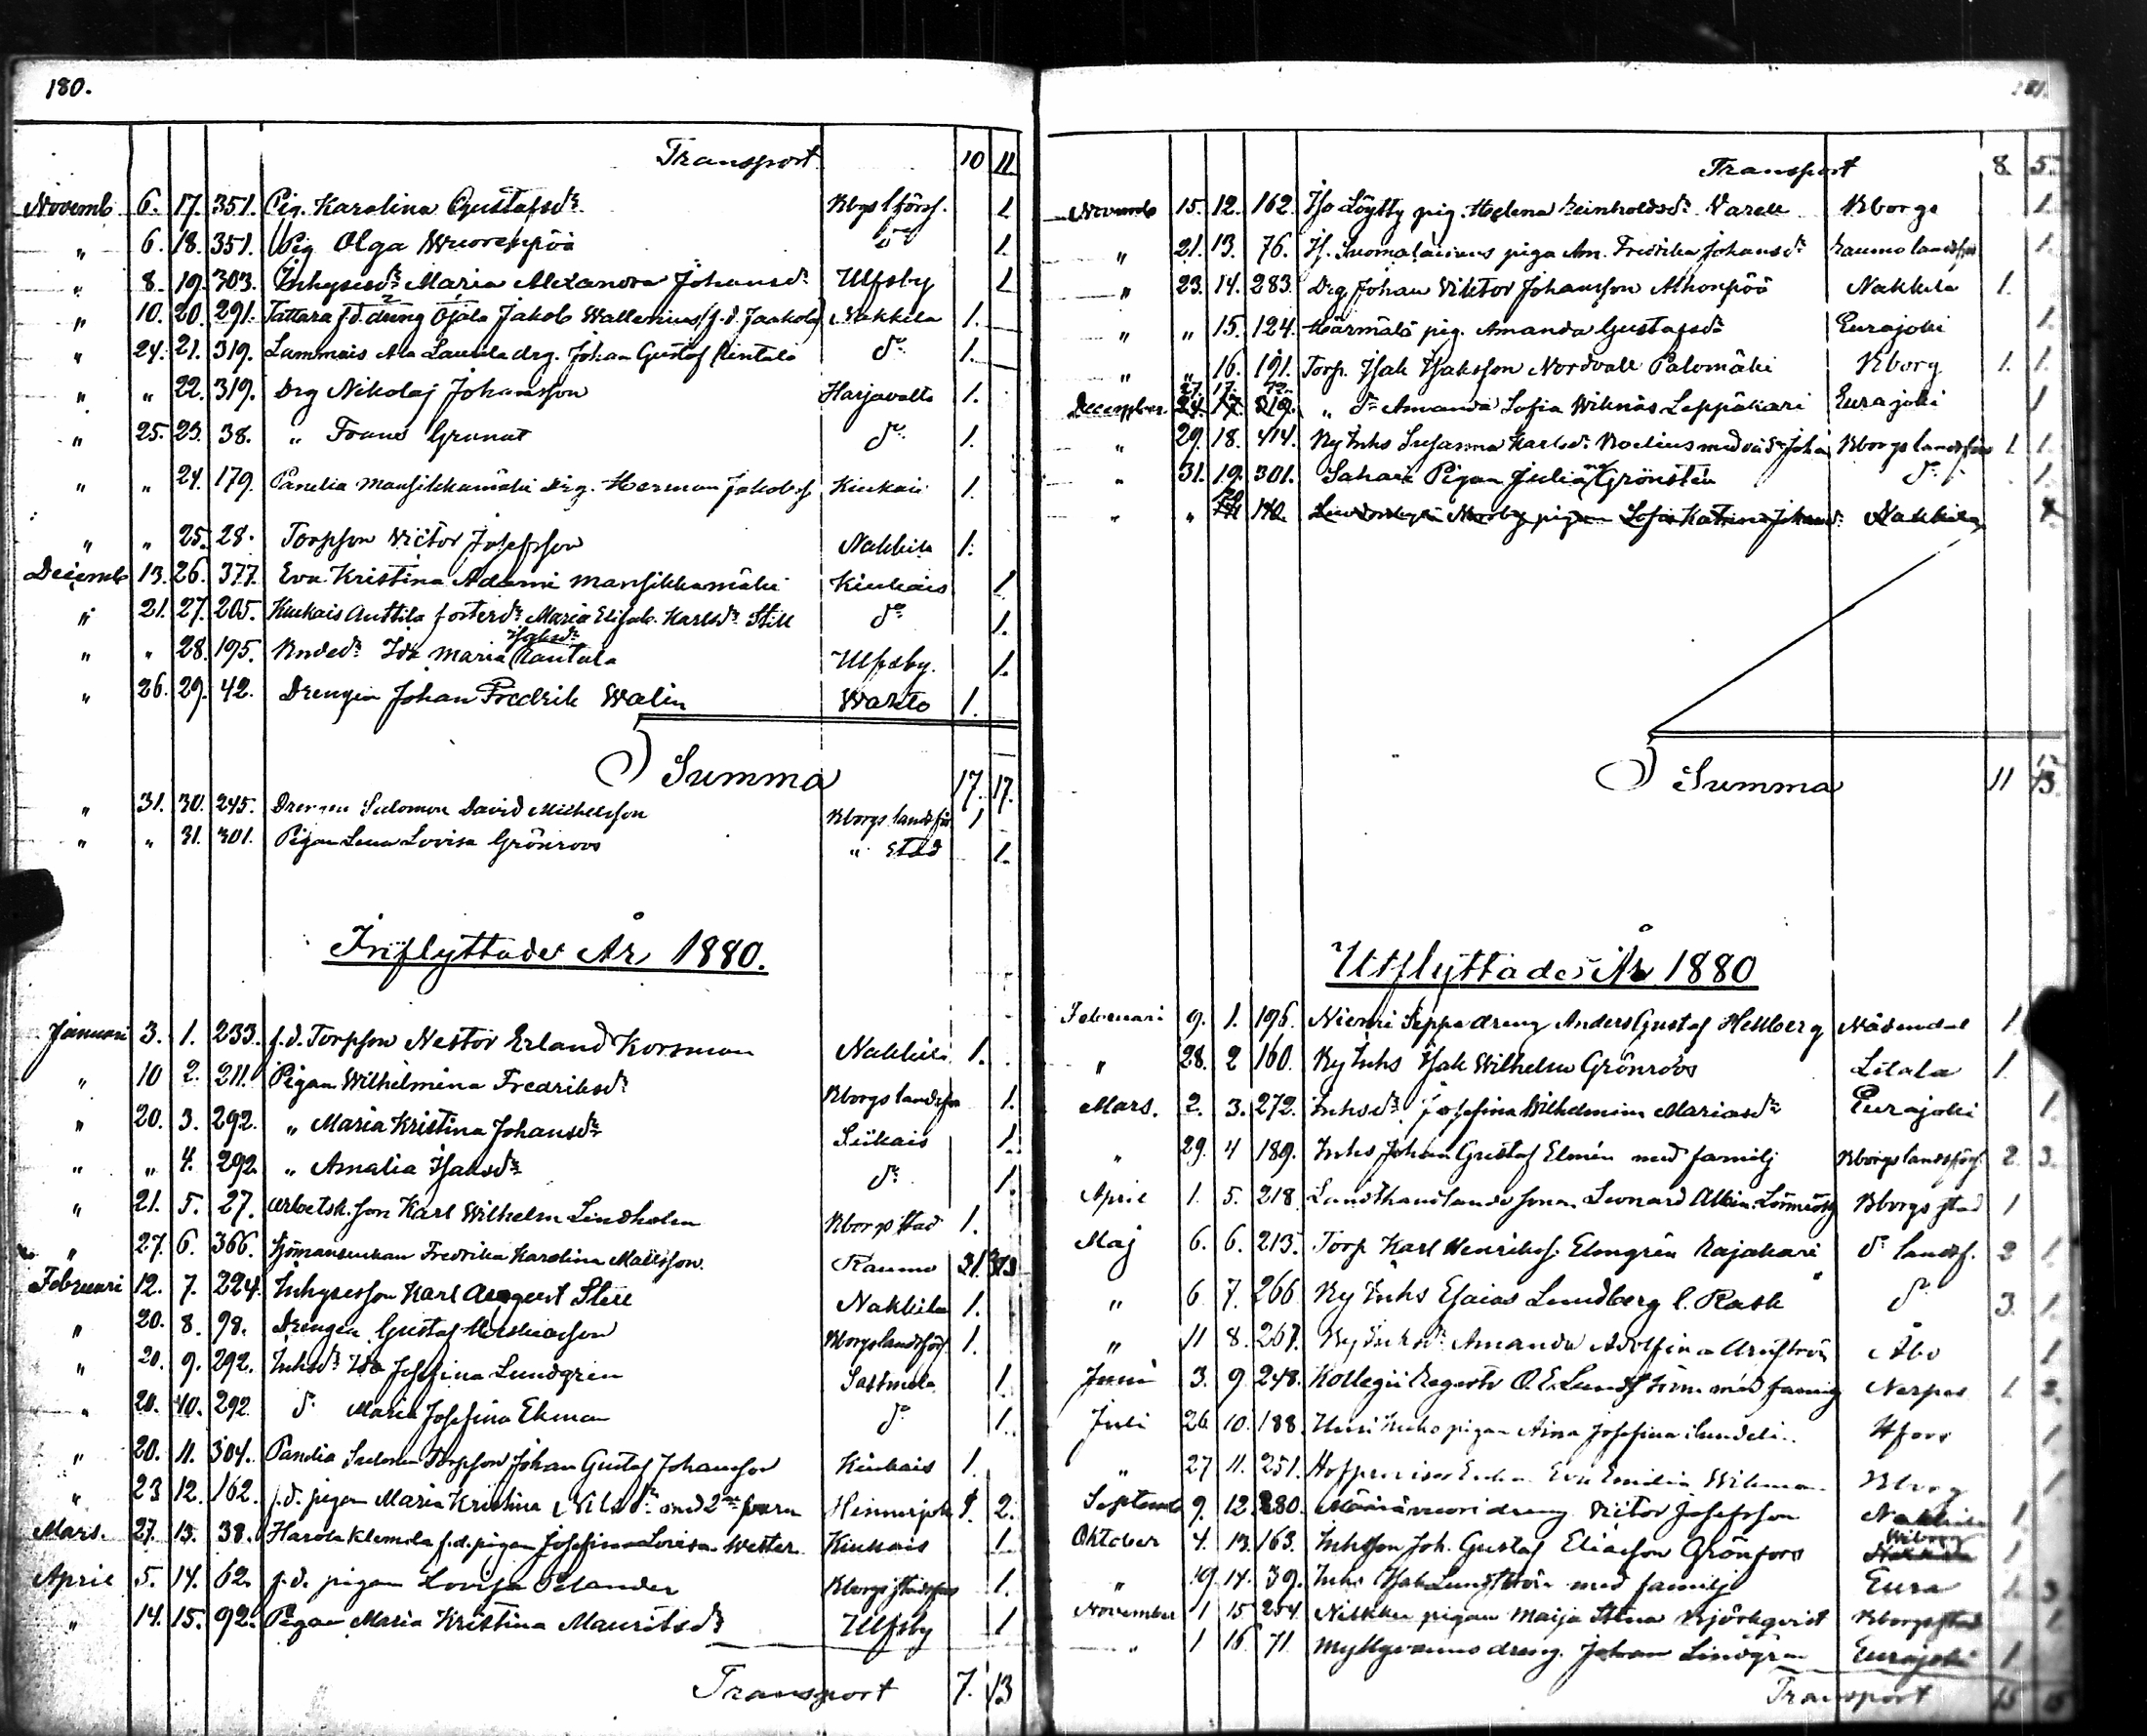 180.
Transport 10 11.
Novemb. 6. 17. 351. Pig. Karolina Gustafsdr Bbgs lförs. 1
" 6. 18. 351. Pig Olga Wuorenpää do 1.
" 8. 19. 303. Inhysesdr Maria Alexandra Johansdr Ulfsby 1
" 10. 20. 291. Tattara f.d. dreng Ojala Jakob Wallenius (f.d. Jaakola) Nakkila 1.
" 24. 21. 319. Lammais Ala Laurila drg. Johan Gustaf Rintala do 1.
" " 22. 319. Drg Nikolaj Johansson Harjavalta 1.
" 25. 23. 38. " Frans Granat do 1.
" " 24. 179. Panelia Mansikkamäki drg. Herman Jakobsf Kiukais 1.
" " 25. 28. Torpson Victor Josefsson Nakkila 1.
Decemb 13. 26. 377. Eva Kristina Adami Mansikkamäki Kiukais 1.
" 21. 27. 205. Kiukais Anttila fosterdr Maria Elisab. Karlsdr Still do 1.
" " 28. 195. Bondedr Ida Maria Isaksdr Rantala Ulfsby. 1.
" 26. 29. 42. Drengen Johan Fredrik Walin Wahto 1.
Summa 17. 17.
" 31. 30. 245. Drengen Salomon David Michelsson Bborgs landsför 1
" " 31. 301. Pigan Lena Lovisa Grönroos " stad 1.
Inflyttade År 1880.
Januari 3. 1. 233. f.d. Torpson Nestor Erland Korsman Nakkila 1.
" 10 2. 211. Pigan Wilhelmina Fredriksdr Bborgs landsför 1.
" 20. 3. 292. " Maria Kristina Johansdr Siikais 1.
" " 4. 292 " Amalia Isaksdr do 1.
" 21. 5. 27. Arbetsk. son Karl Wilhelm Lindholm Bborgs stad 1.
" 27. 6. 366. Sjömansenkan Fredrika Karolina Mattsson Raumo
Februari 12. 7. 224. Inhysesson Karl August Stell Nakkila 1.
" 20. 8. 98. Drengen Gustaf Bborgs landsförs 1.
" 20. 9. 292. Inhsdr Ida Josefina Lundgren Sastmola 1.
" 20. 10. 292 do Maria Josefina Ekman do 1.
" 20. 11. 304. Panelia Torpson Johan Gustaf Johansson Kiukais 1.
" 23 12. 162. f.d. pigan Maria Kristina Nilsdr med 2ne barn Hinnerjoki 1. 2.
Mars. 27. 13. 38. Harola Klemola f.d. pigan Josefina Lovisa Wester Kiukais 1.
April 5. 14. 62. f.d. pigan Lovisa Pelander Bborgs 1.
" 14. 15. 92. Pigan Maria Kristina Mauritsdr Ulfsby 1
Transport 7. 13
181.
Transport 8. 5.
Novemb 15. 12. 162. Iso Löytty pig. Helena Reinholdsdr Varell Bborgs 1.
" 21. 13. 76. If. Suomalainens piga Am. Fredrika Johansdr Raumo landsför 1.
" 23. 14. 283. Drg Johan Viktor Johansson Alhonpää Nakkila 1.
" " 15. 124. Härmälä pig. Amanda Gustafsdr Eurajoki 1.
" " 16. 191. Torp. Isak Isaksson Nordvall Palomäki Bborg 1. 1.
December 27. 17. 72. " dr Amanda Sofia Wiknäs Leppäkari Eurajoki 1
" 29. 18. 414. Ny Inhs Susanna Karlsdr Boelius med Joha Bborgs landsförs 1 1.
" 31. 19. 301. Sahari Pigan Juliana Grönsten do 1.
" " pigan Sofia Katrina Johansdr Nakkila
Summa 11
Utflyttades År 1880
Februari 9. 1. 196. Niemi Seppä dreng Anders Gustaf Hellberg Nådendal 1
" 28. 2 160. Ny Inhs Isak Wilhelm Grönroos Letala 1.
Mars. 2. 3. 272. Inhsdr Josefina Wilhelmina Mariasdr Eurajoki 1.
" 29. 4 189. Inhs Johan Gustaf Elmén med familj Bborgs landsförs. 2 3.
April 1. 5. 218 Landthandlande sonen Leonard Albin Bborgs stad 1
Maj 6. 6. 213. Torp Karl Henriksf. Elmgrén Rajakari do landsf. 2 1.
" 6 7. 266 Ny Inhs Esaias Lundberg l. Rask do 3. 1.
" 11 8. 267. Ny Inhsdr Amanda Adolfina Åbo 1
Juni 3. 9 248. Kollegii Registr O.E. Lundström med familj Nerpes 1 2.
Juli 26 10. 188. pigan Aina Josefina Hfors 1
" 27 11. 251. Eva Emilia Wikman Bborg 1
Septemb 9. 12. 280. dreng Victor Josefsson Nakkila 1
Oktober 4. 13. 163. Inhsson Joh. Gustaf Eliasson Grönfors Wiborg 1
" 19. 14. 39. Inhs Isak Lundström med familj Eura 1. 3
November 1 15 254. Nikkku pigan Maija Stina Björkqvist Bborgs stad 1
" 1 16 71 Myllyvainio dreng. Johan Lindgren Eurajoki 1
Transport 15 15